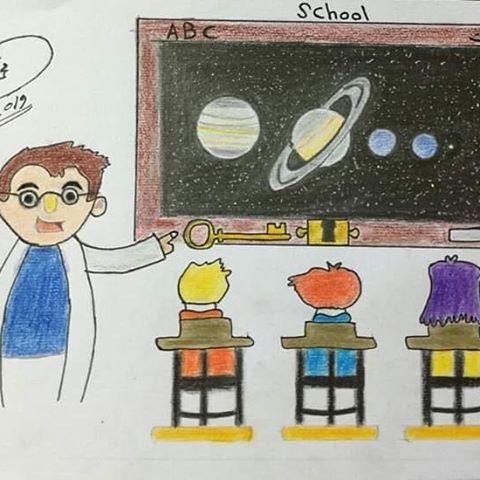 School
ABC
019